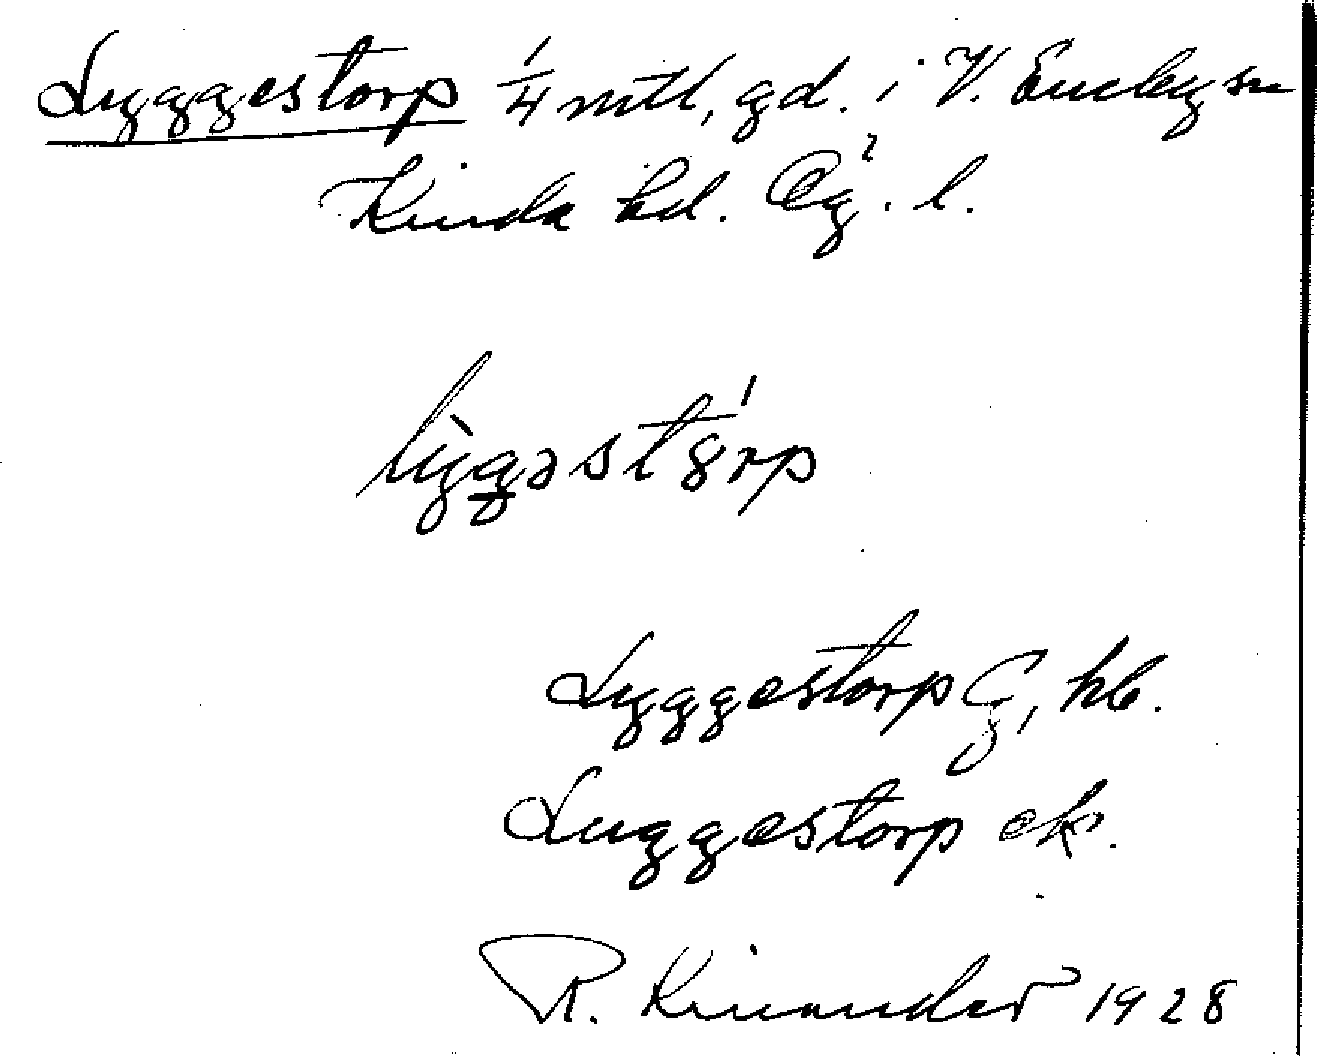 Lyggestorp 1/4 mtl, gd. i V. Eneby sn
Kinda hd. Ög. l.
Lyggestorp G, hb.
Luggestorp ek.
R. Kinander 1928